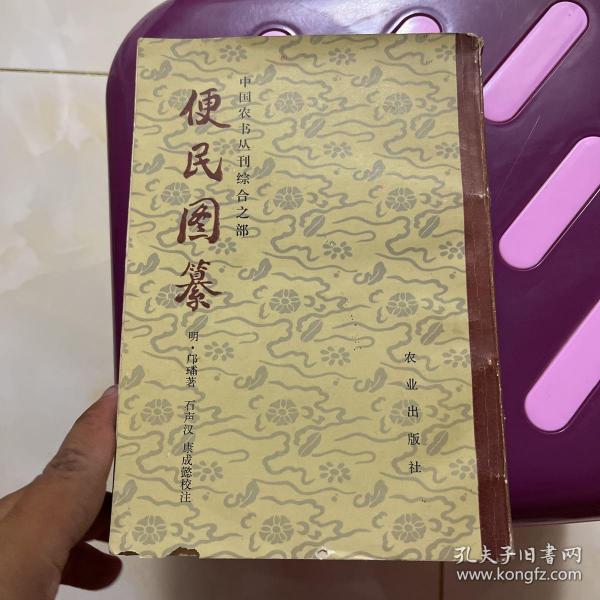 中国农书丛刊综合之部
便民图纂
明·邝璠著 石声汉 康成懿校注
农业出版社
孔夫子旧书网
www.kongfz.com